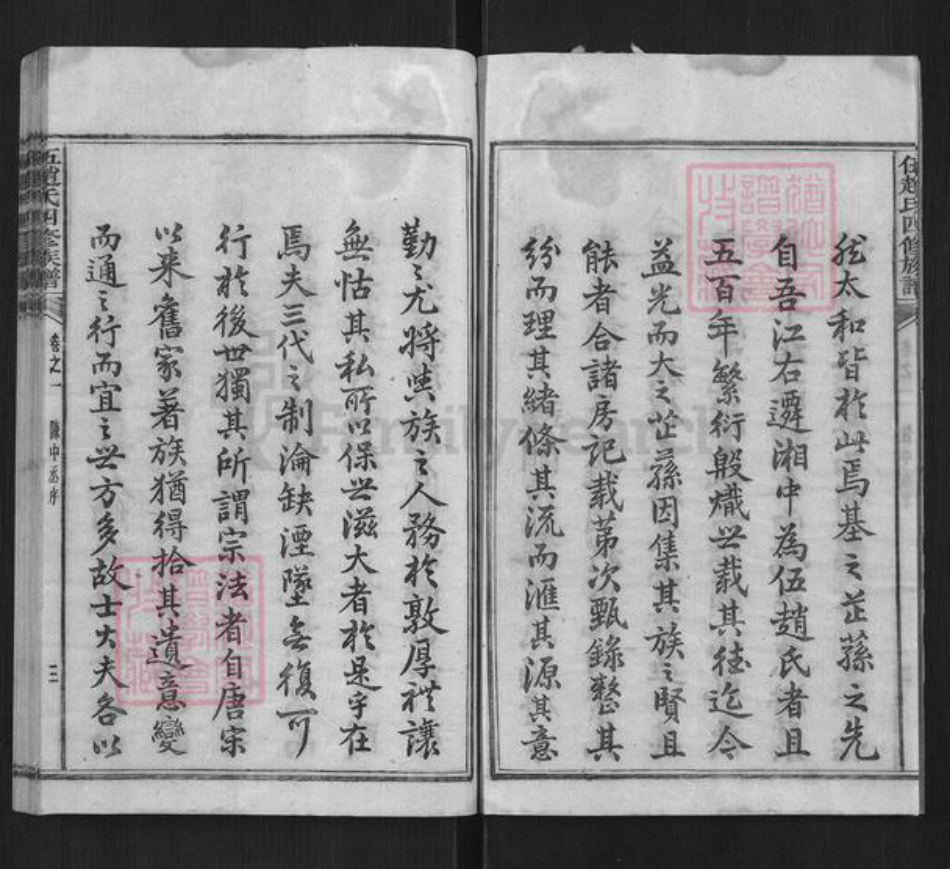 伍趙氏四修族譜
然太和皆於此焉基之芷蓀之先
自吾江右遷湘中為伍趙氏者且
五百年繁衍殷熾世載其徳迄今
益光而大之芷蓀因集其族之賢且
能者合諸房記載苐次甄錄整其
紛而理其緒條其流而滙其源其意
勤〻尤將使族之人務於敦厚礼讓
無怙其私所以保世滋大者於是乎在
焉夫三代之制淪缺湮墜無復可
行於後世獨其所謂宗法者自唐宋
以来舊家著族猶得拾其遺意變
而通之行而宜之世方多故士大夫各以
伍趙氏四修族譜
卷之一
陳中丞序
三
FamilySearch